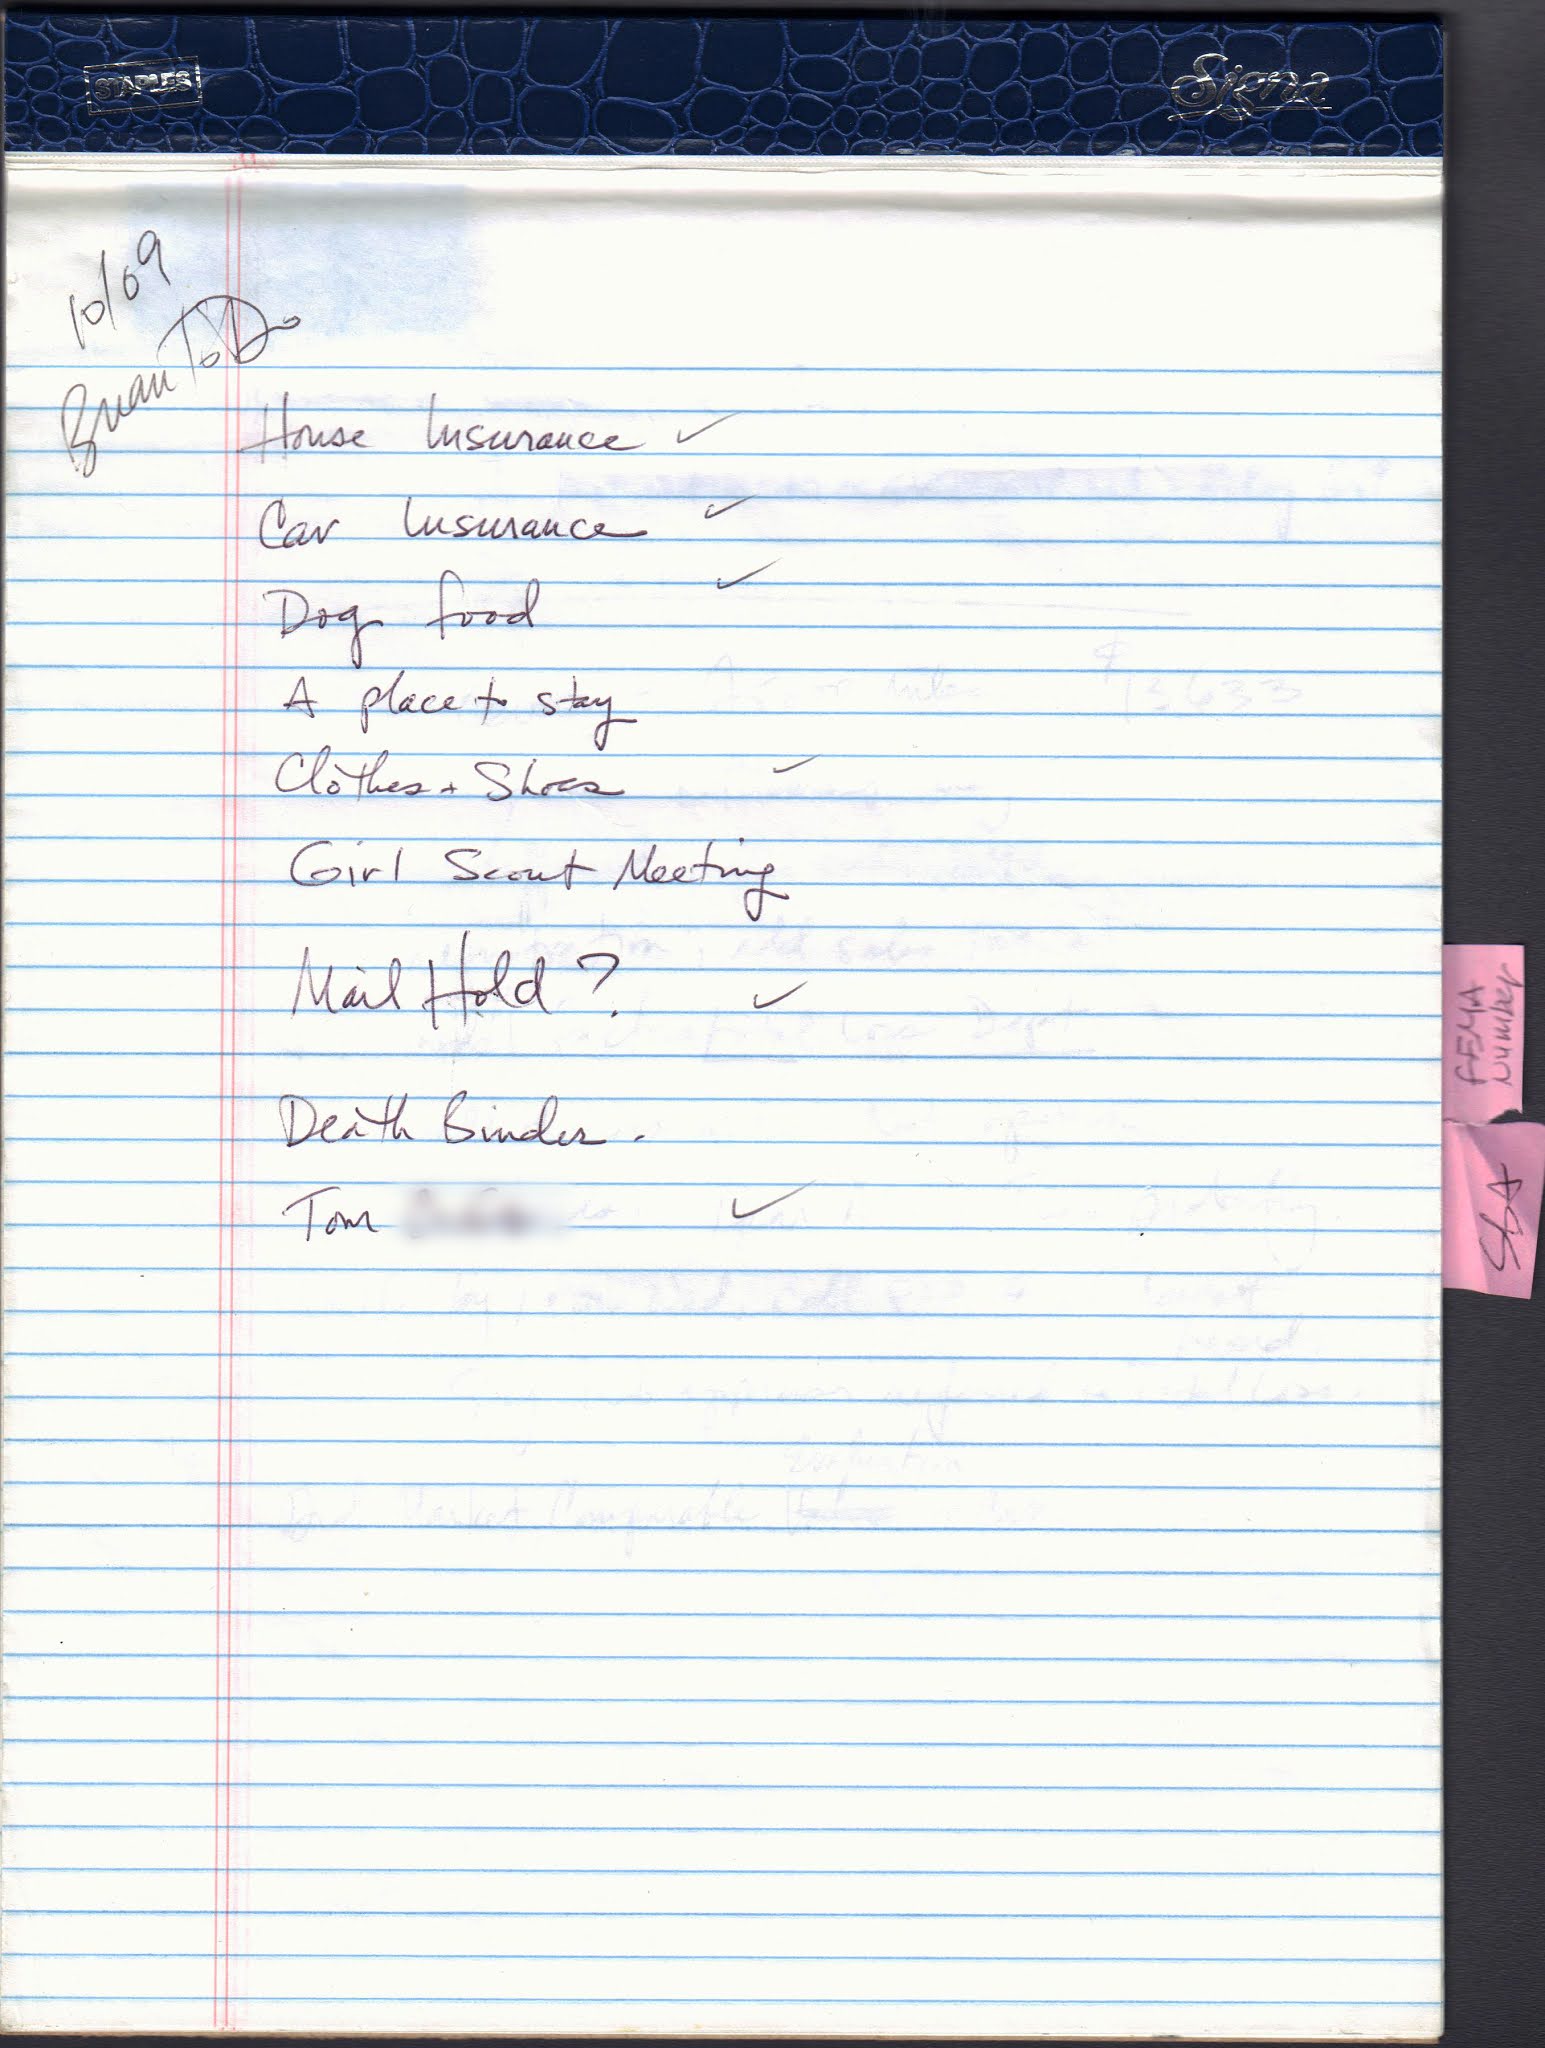 STAPLES
Signa
10/09
Brian To Do
House Insurance ✓
Car Insurance ✓
Dog food ✓
A place to stay
Clothes + Shoes ✓
Girl Scout Meeting
Mail Hold? ✓
Death Binder.
Tom ✓
FEMA
Number
SBA
$13633
Market Comparable